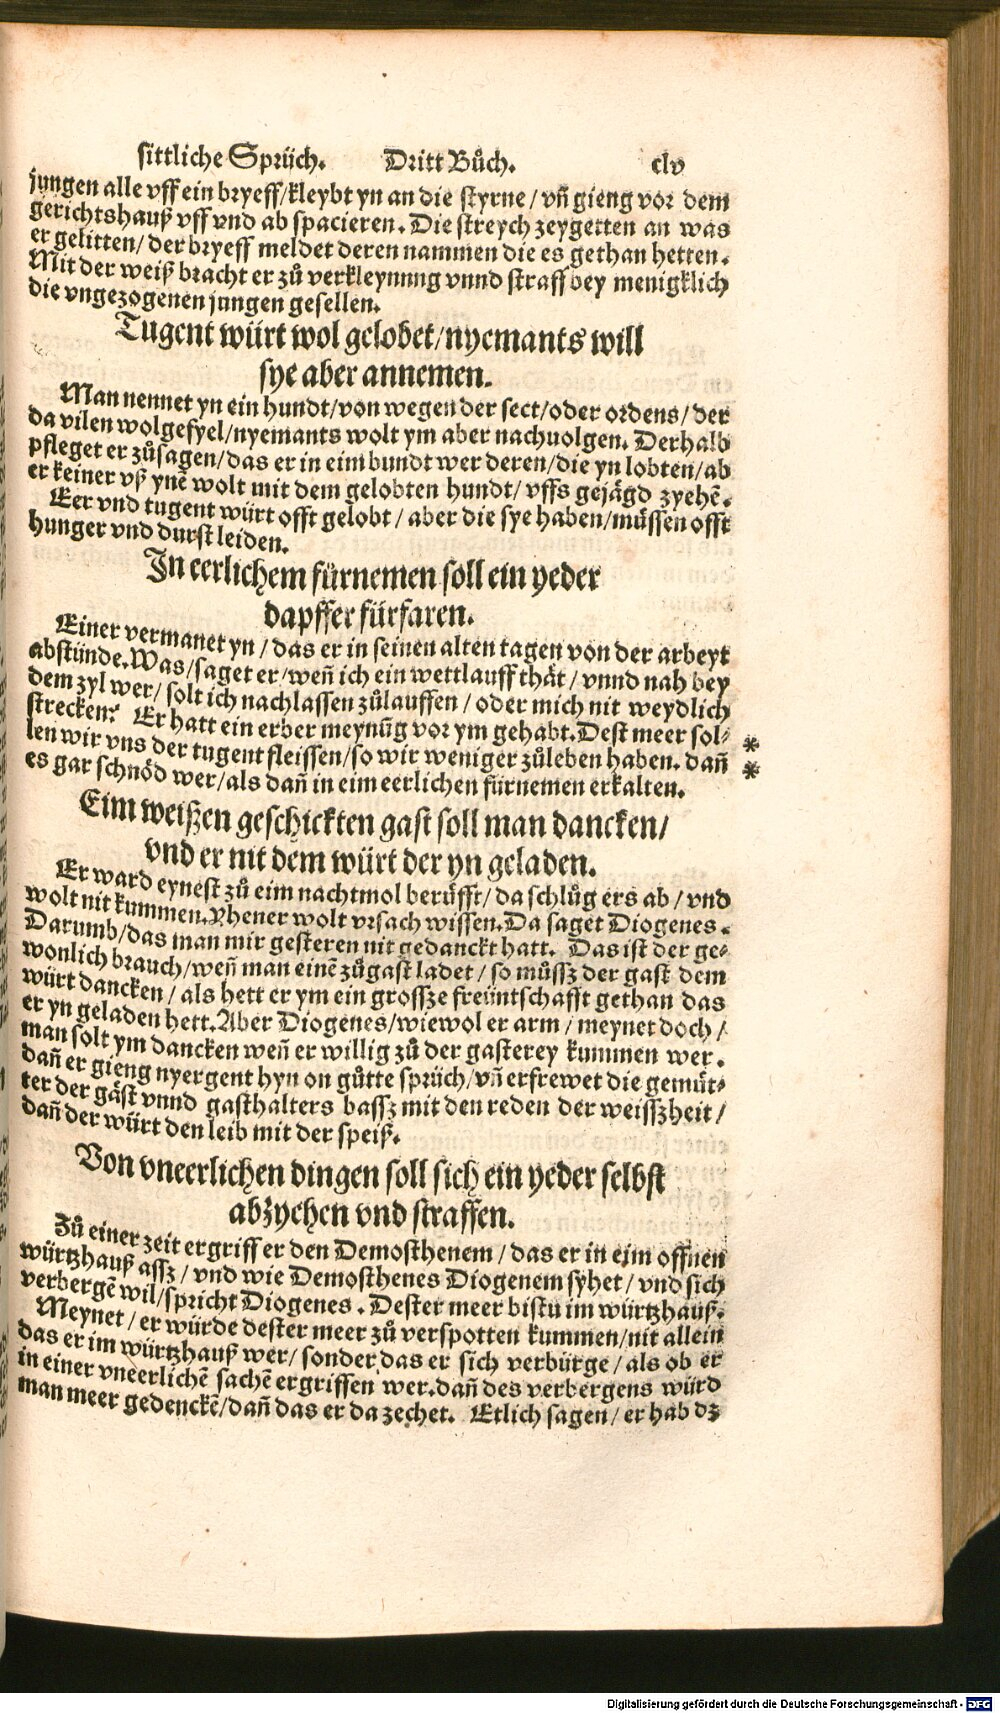 sittliche Sprüch. Dritt Bůch. clv
jungen alle vff ein bryeff/kleybt yn an die styrne/ vñ gieng vor dem
gerichtshauß vff vnd ab spacieren. Die streych zeygetten an was
er gelitten/ der bryeff meldet deren nammen die es gethan hetten.
Mit der weiß bracht er zů verkleynung vnnd straff bey menigklich
die vngezogenen jungen gesellen.
Tugent würt wol gelobet/nyemants will
sye aber annemen.
Man nennet yn ein hundt/von wegen der sect/oder ordens/ der
da vilen wolgefyel/nyemants wolt ym aber nachuolgen. Derhalb
pfleget er zůsagen/das er in eim bundt wer deren/die yn lobten/ab
er keiner vß ynē wolt mit dem gelobten hundt/ vffs gejägd zyehē.
Eer vnd tugent würt offt gelobt/ aber die sye haben/müssen offt
hunger vnd durst leiden.
In eerlichem fürnemen soll ein yeder
dapffer fürfaren.
Einer vermanet yn/ das er in seinen alten tagen von der arbeyt
abstünde. Was/saget er/weñ ich ein wettlauff thät/ vnnd nah bey
dem zyl wer/ solt ich nachlassen zůlauffen/ oder mich nit weydlich
strecken? Er hatt ein erber meynūg vor ym gehabt. Dest meer sol- *
len wir vns der tugent fleissen/so wir weniger zůleben haben. dañ *
es gar schnöd wer/als dañ in eim eerlichen fürnemen erkalten.
Eim weißen geschickten gast soll man dancken/
vnd er nit dem würt der yn geladen.
Er ward eynest zů eim nachtmol berüfft/ da schlůg ers ab/ vnd
wolt nit kummen. Yhener wolt vrsach wissen. Da saget Diogenes.
Darumb/das man mir gesteren nit gedanckt hatt. Das ist der ge-
wonlich brauch/weñ man einē zůgast ladet/ so můssz der gast dem
würt dancken/ als hett er ym ein grossze freüntschafft gethan das
er yn geladen hett. Aber Diogenes/wiewol er arm/ meynet doch/
man solt ym dancken weñ er willig zů der gasterey kummen wer.
dañ er gieng nyergent hyn on gůtte sprüch/vñ erfrewet die gemüt-
ter der gäst vnnd gasthalters bassz mit den reden der weisszheit/
dañ der würt den leib mit der speiß.
Von vneerlichen dingen soll sich ein yeder selbst
abzyehen vnd straffen.
Zů einer zeit ergriff er den Demosthenem/ das er in eim offnen
würtzhauß assz/ vnd wie Demosthenes Diogenem syhet/ vnd sich
verbergē wil/spricht Diogenes. Dester meer bistu im würtzhauß.
Meynet/ er würde dester meer zů verspotten kummen/nit allein
das er im würtzhauß wer/ sonder das er sich verbürge/ als ob er
in einer vneerlichē sachē ergriffen wer. dañ des verbergens würd
man meer gedenckē/dañ das er da zechet. Etlich sagen/ er hab dz
Digitalisierung gefördert durch die Deutsche Forschungsgemeinschaft - DFG